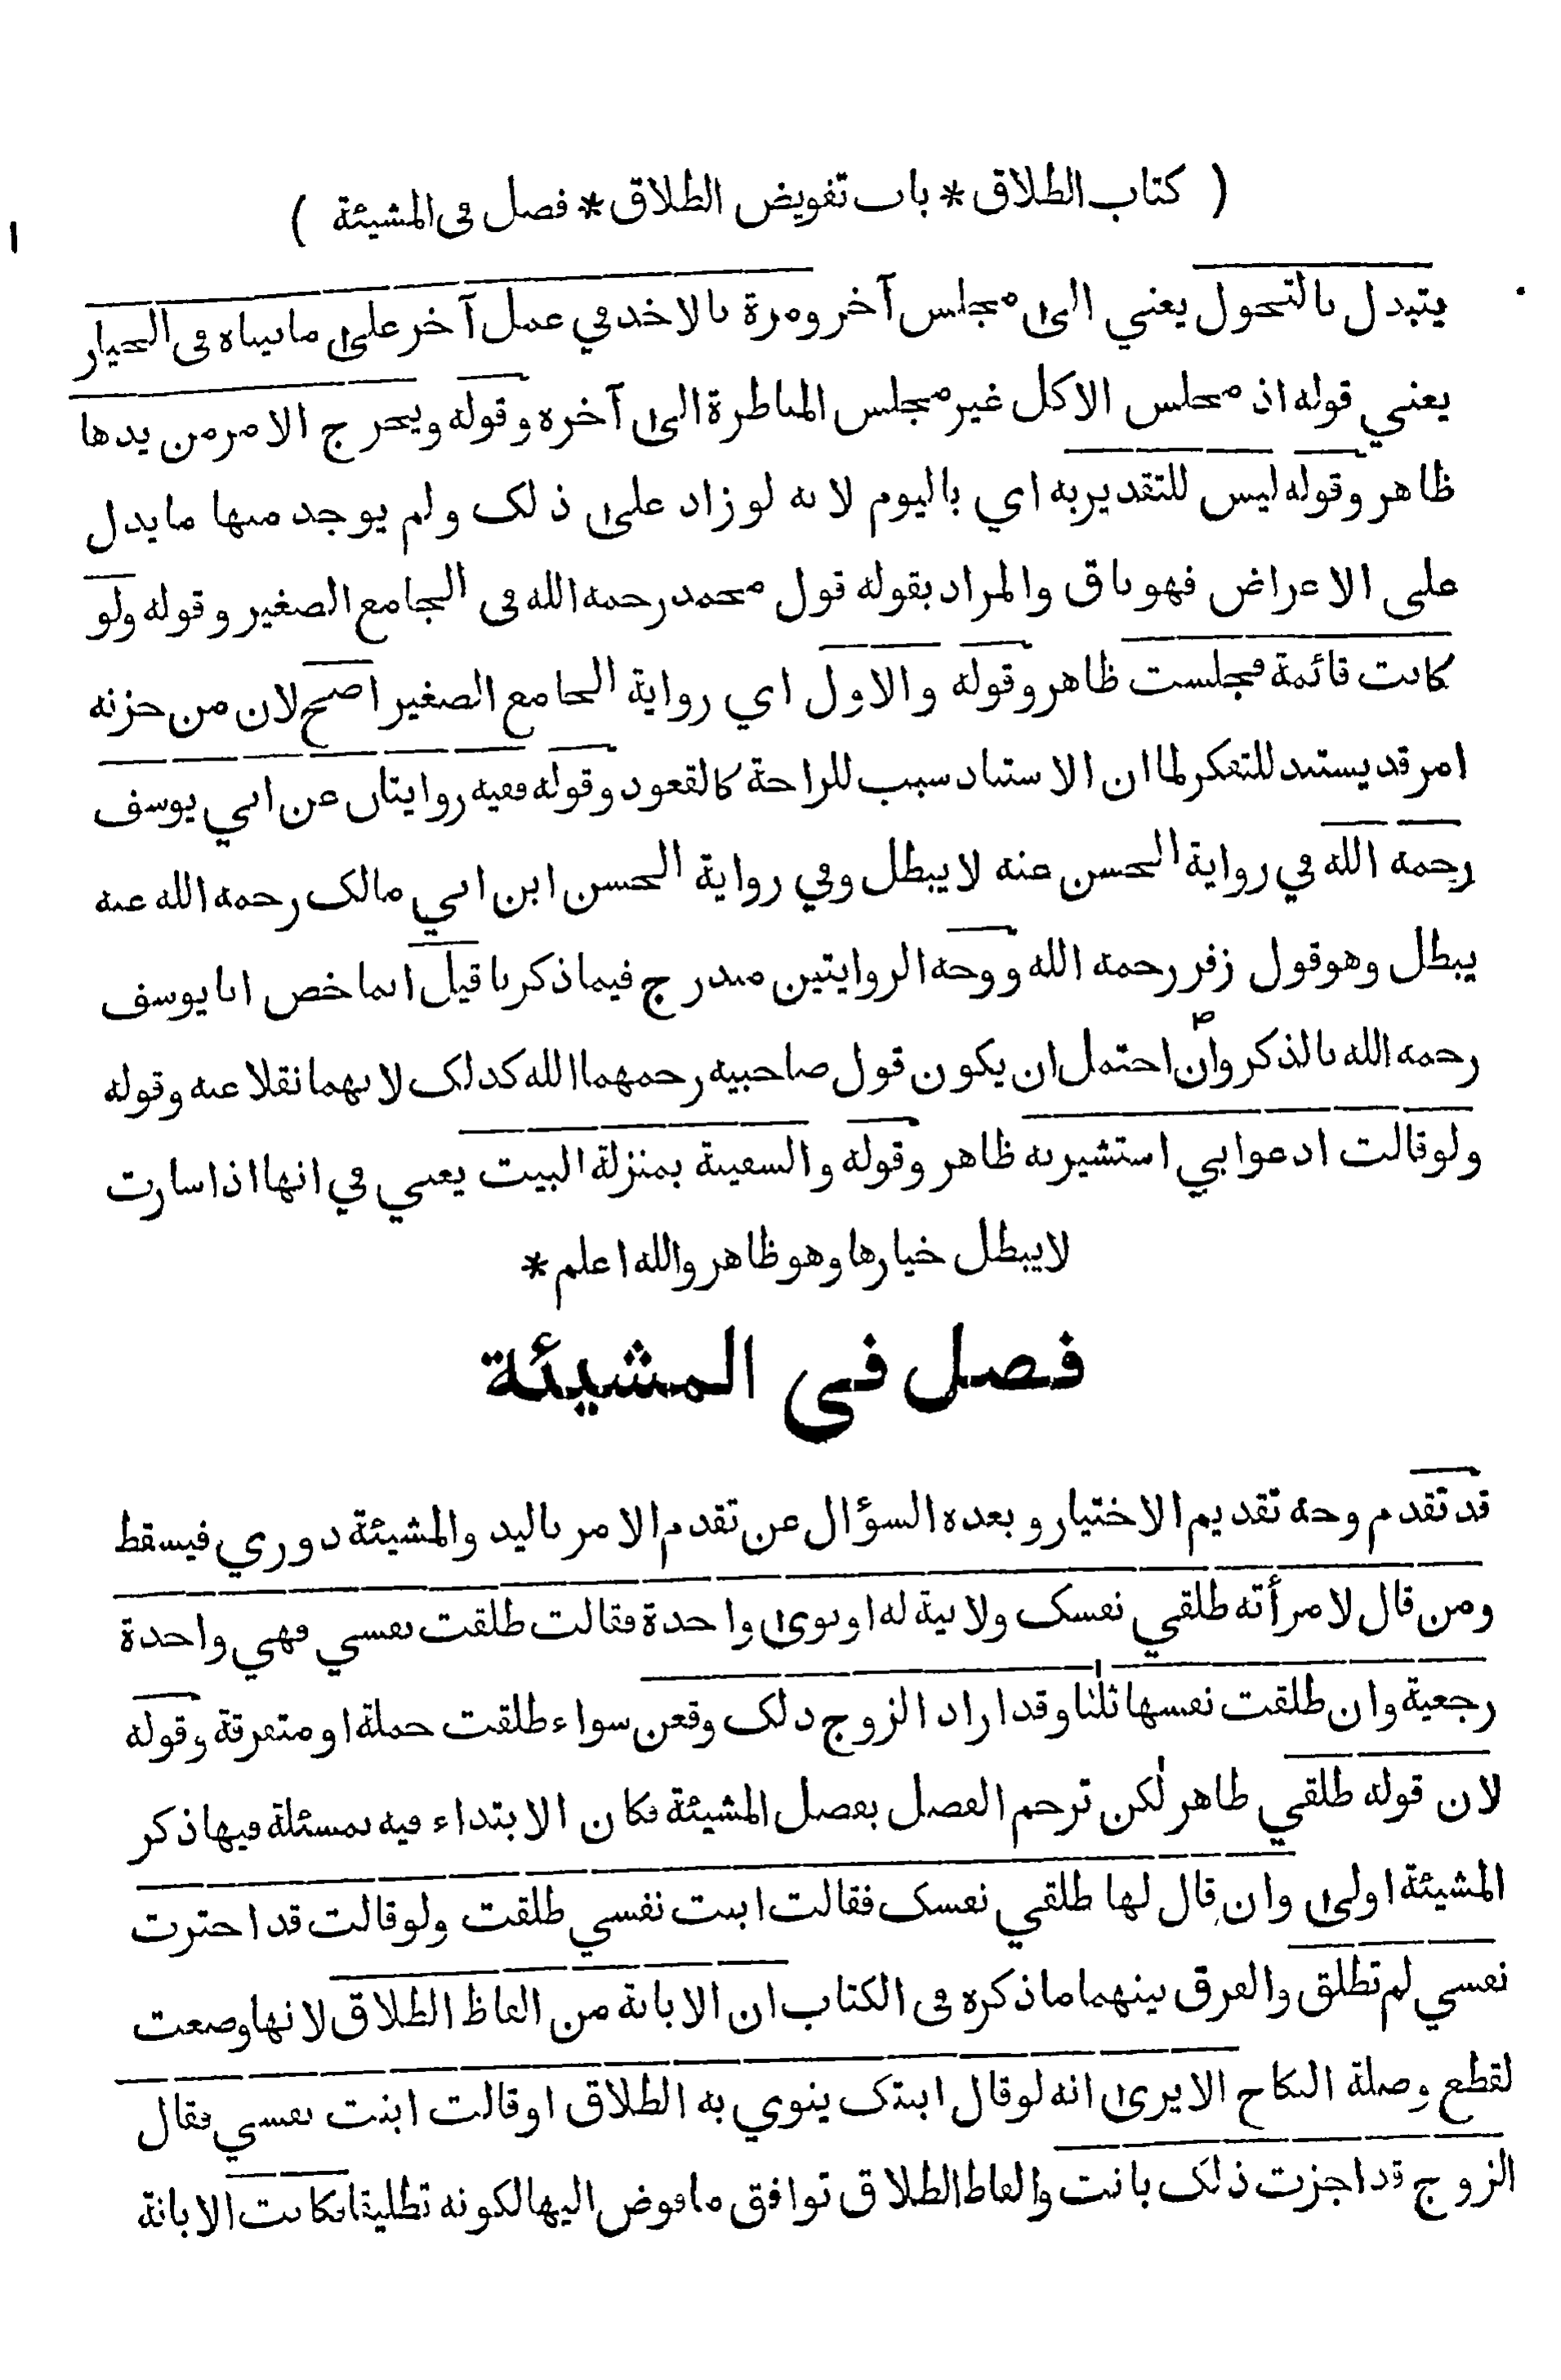 ( كتاب الطلاق * باب تفويض الطلاق * فصل في المشيئة )
يتبدل بالتحول يعني الى مجلس آخر ومرة بالاخذ في عمل آخر على ما بيناه في الخيار
يعني قوله اذ مجلس الاكل غير مجلس المناظرة الى آخره وقوله ويخرج الامر من يدها
ظاهر وقوله ليس للتقدير به اي باليوم لانه لو زاد على ذلك ولم يوجد منها ما يدل
على الاعراض فهو باق والمراد بقوله قول محمد رحمه الله في الجامع الصغير وقوله ولو
كانت قائمة فجلست ظاهر وقوله والاول اي رواية الجامع الصغير اصح لان من حزنه
امر قد يستند للتفكر لما ان الاستناد سبب للراحة كالقعود وقوله ففيه روايتان عن ابي يوسف
رحمه الله في رواية الحسن عنه لا يبطل وفي رواية الحسن ابن ابي مالك رحمه الله عنه
يبطل وهو قول زفر رحمه الله ووجه الروايتين مندرج فيما ذكرنا قيل انما خص ابا يوسف
رحمه الله بالذكر وان احتمل ان يكون قول صاحبيه رحمهما الله كذلك لانهما نقلا عنه وقوله
ولو قالت ادعوا بي استشيره ظاهر وقوله والسفينة بمنزلة البيت يعني في انها اذا سارت
لا يبطل خيارها وهو ظاهر والله اعلم *
فصل في المشيئة
قد تقدم وجه تقديم الاختيار وبعده السؤال عن تقدم الامر باليد والمشيئة دوري فيسقط
ومن قال لامرأته طلقي نفسك ولا نية له او نوى واحدة فقالت طلقت نفسي فهي واحدة
رجعية وان طلقت نفسها ثلثا وقد اراد الزوج ذلك وقعن سواء طلقت جملة او متفرقة وقوله
لان قوله طلقي ظاهر لكن ترجم الفصل بفصل المشيئة فكان الابتداء فيه بمسئلة فيها ذكر
المشيئة اولى وان قال لها طلقي نفسك فقالت ابنت نفسي طلقت ولو قالت قد اخترت
نفسي لم تطلق والفرق بينهما ما ذكره في الكتاب ان الابانة من الفاظ الطلاق لانها وضعت
لقطع وصلة النكاح الا يرى انه لو قال ابنتك ينوي به الطلاق او قالت ابنت نفسي فقال
الزوج قد اجزت ذلك بانت والفاظ الطلاق توافق ما فوض اليها لكونه تطليقا فكانت الابانة